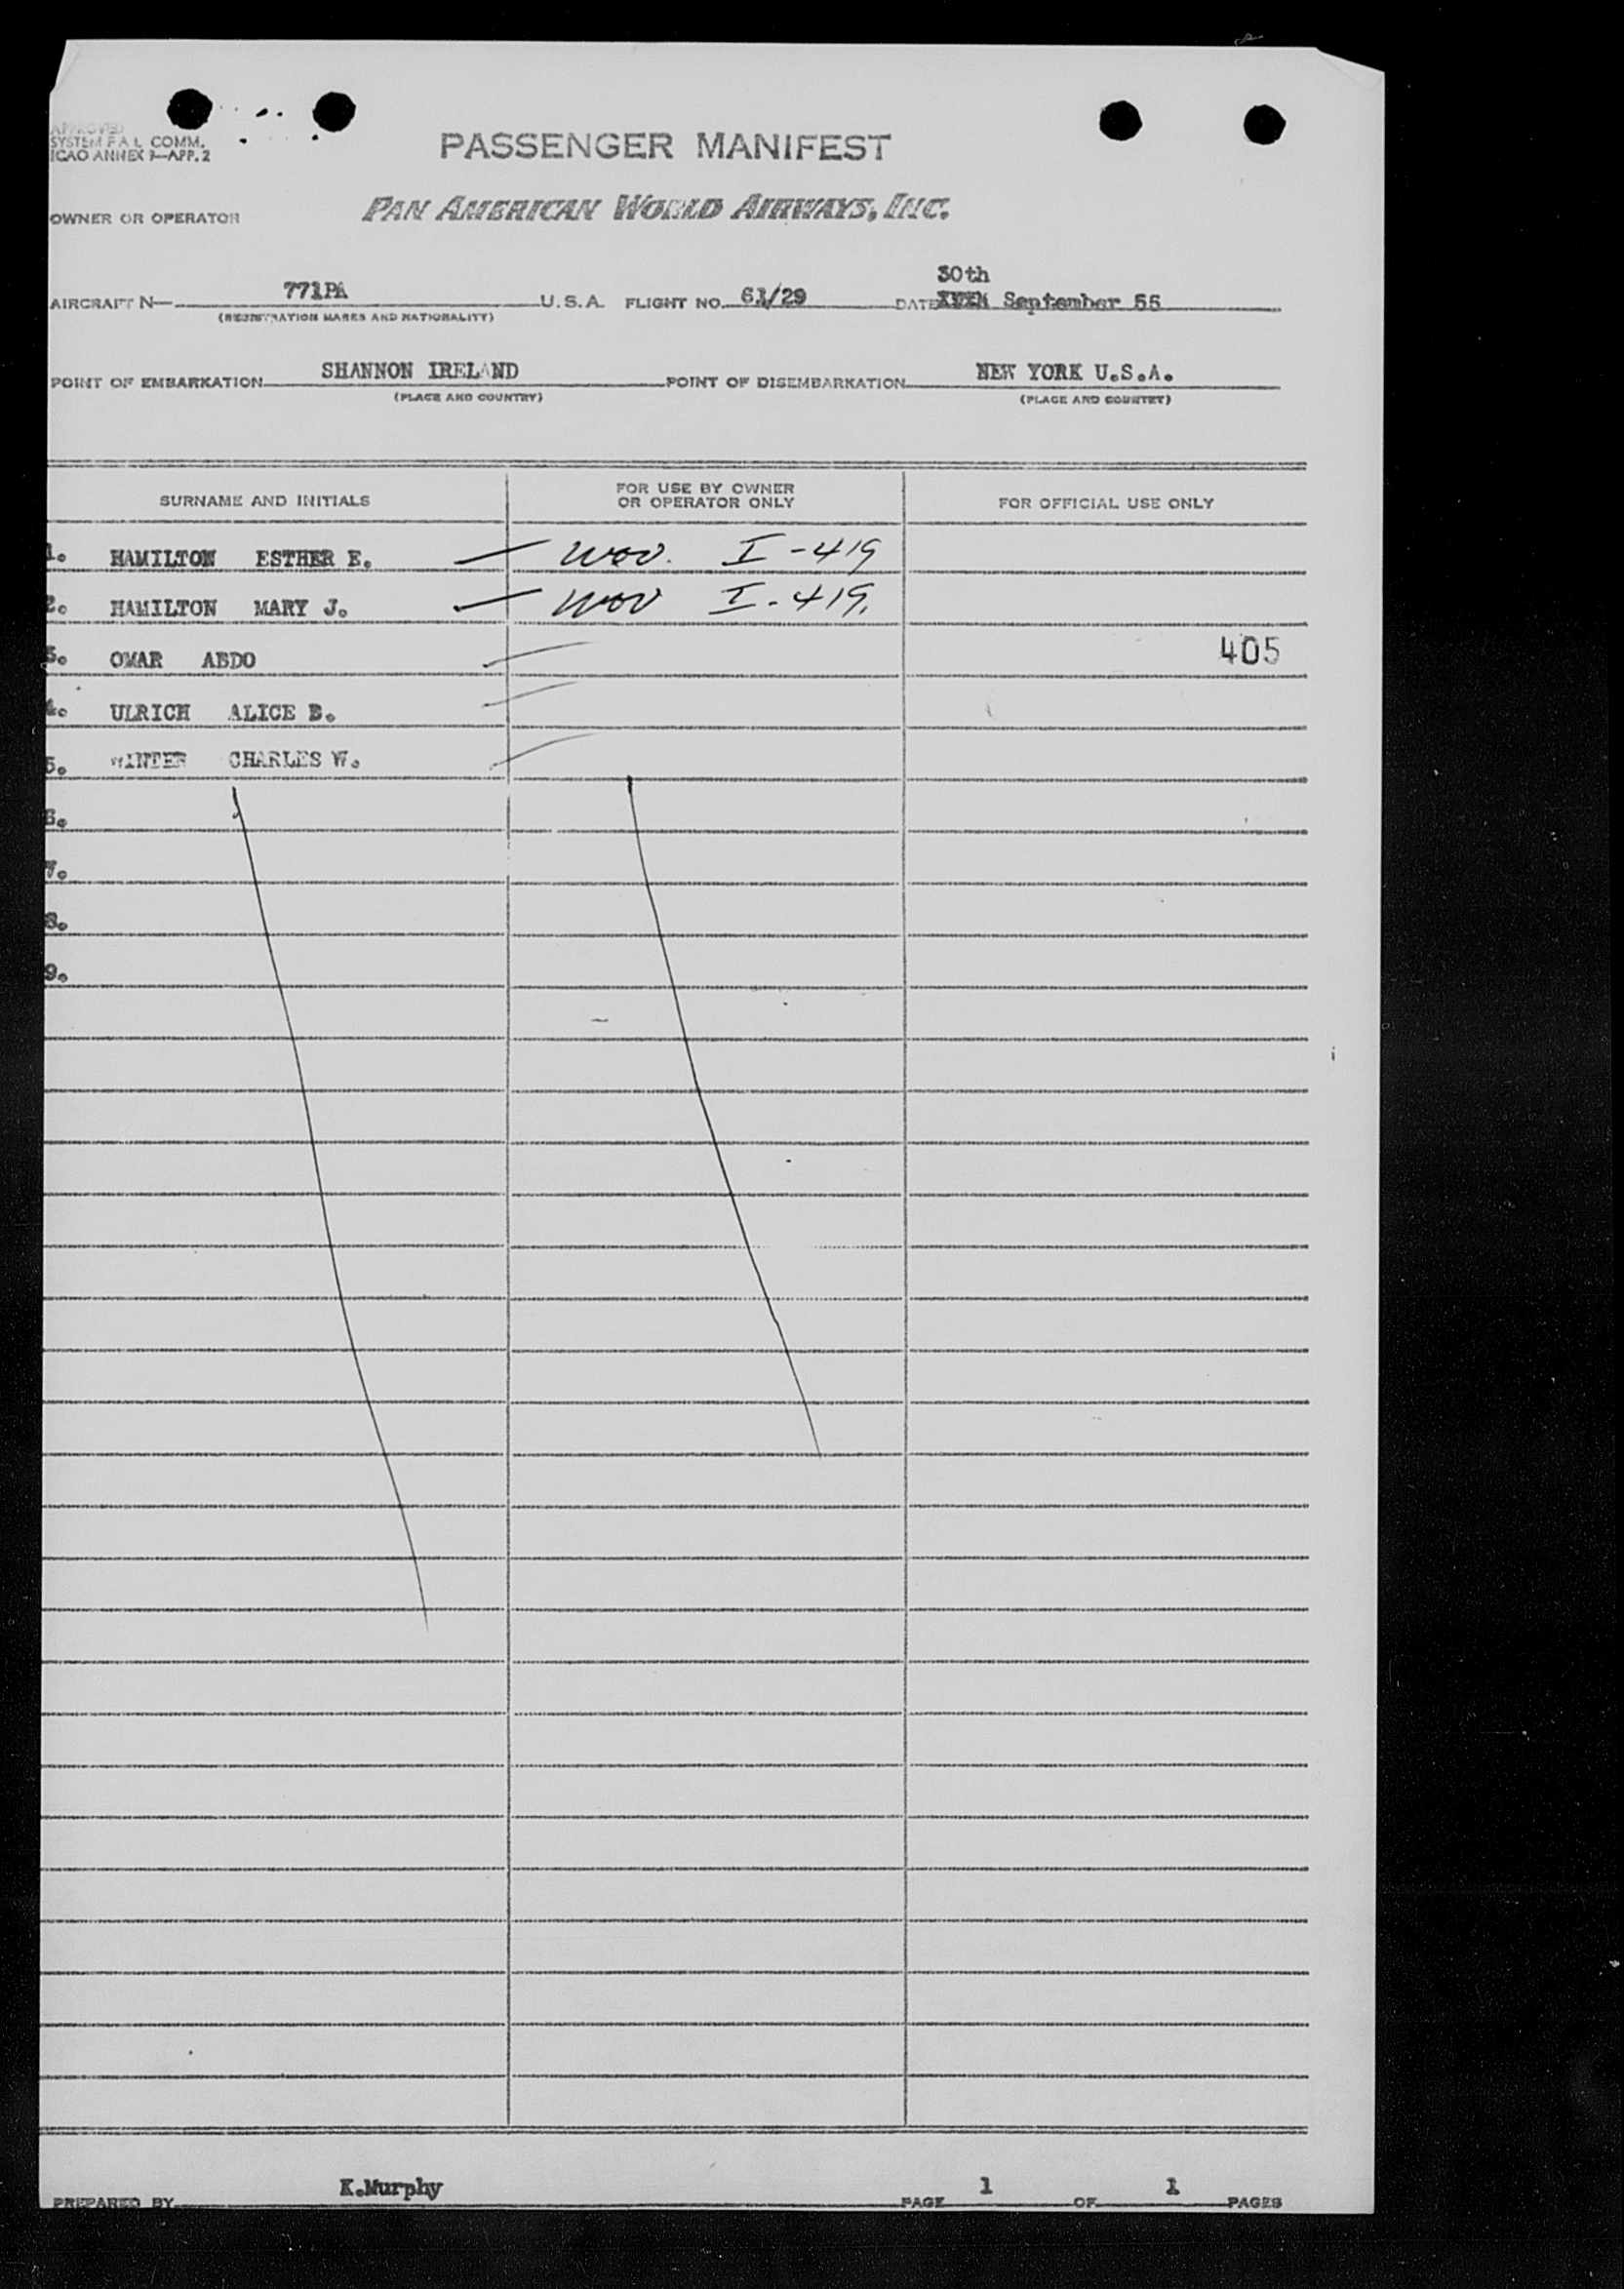 APPROVED
SYSTEM F.A.L. COMM.
ICAO ANNEX 9—APP. 2
PASSENGER MANIFEST
OWNER OR OPERATOR PAN AMERICAN WORLD AIRWAYS, INC.
30th
AIRCRAFT N— 771PA U.S.A. FLIGHT NO. 61/29 DATE September 55
(REGISTRATION MARKS AND NATIONALITY)
POINT OF EMBARKATION SHANNON IRELAND POINT OF DISEMBARKATION NEW YORK U.S.A.
(PLACE AND COUNTRY) (PLACE AND COUNTRY)
SURNAME AND INITIALS FOR USE BY OWNER OR OPERATOR ONLY FOR OFFICIAL USE ONLY
1. HAMILTON ESTHER E. I-419
2. HAMILTON MARY J. I-419.
3. OMAR ABDO 405
4. ULRICH ALICE B.
5. WINTER CHARLES W.
6.
7.
8.
9.
PREPARED BY K.Murphy PAGE 1 OF 1 PAGES